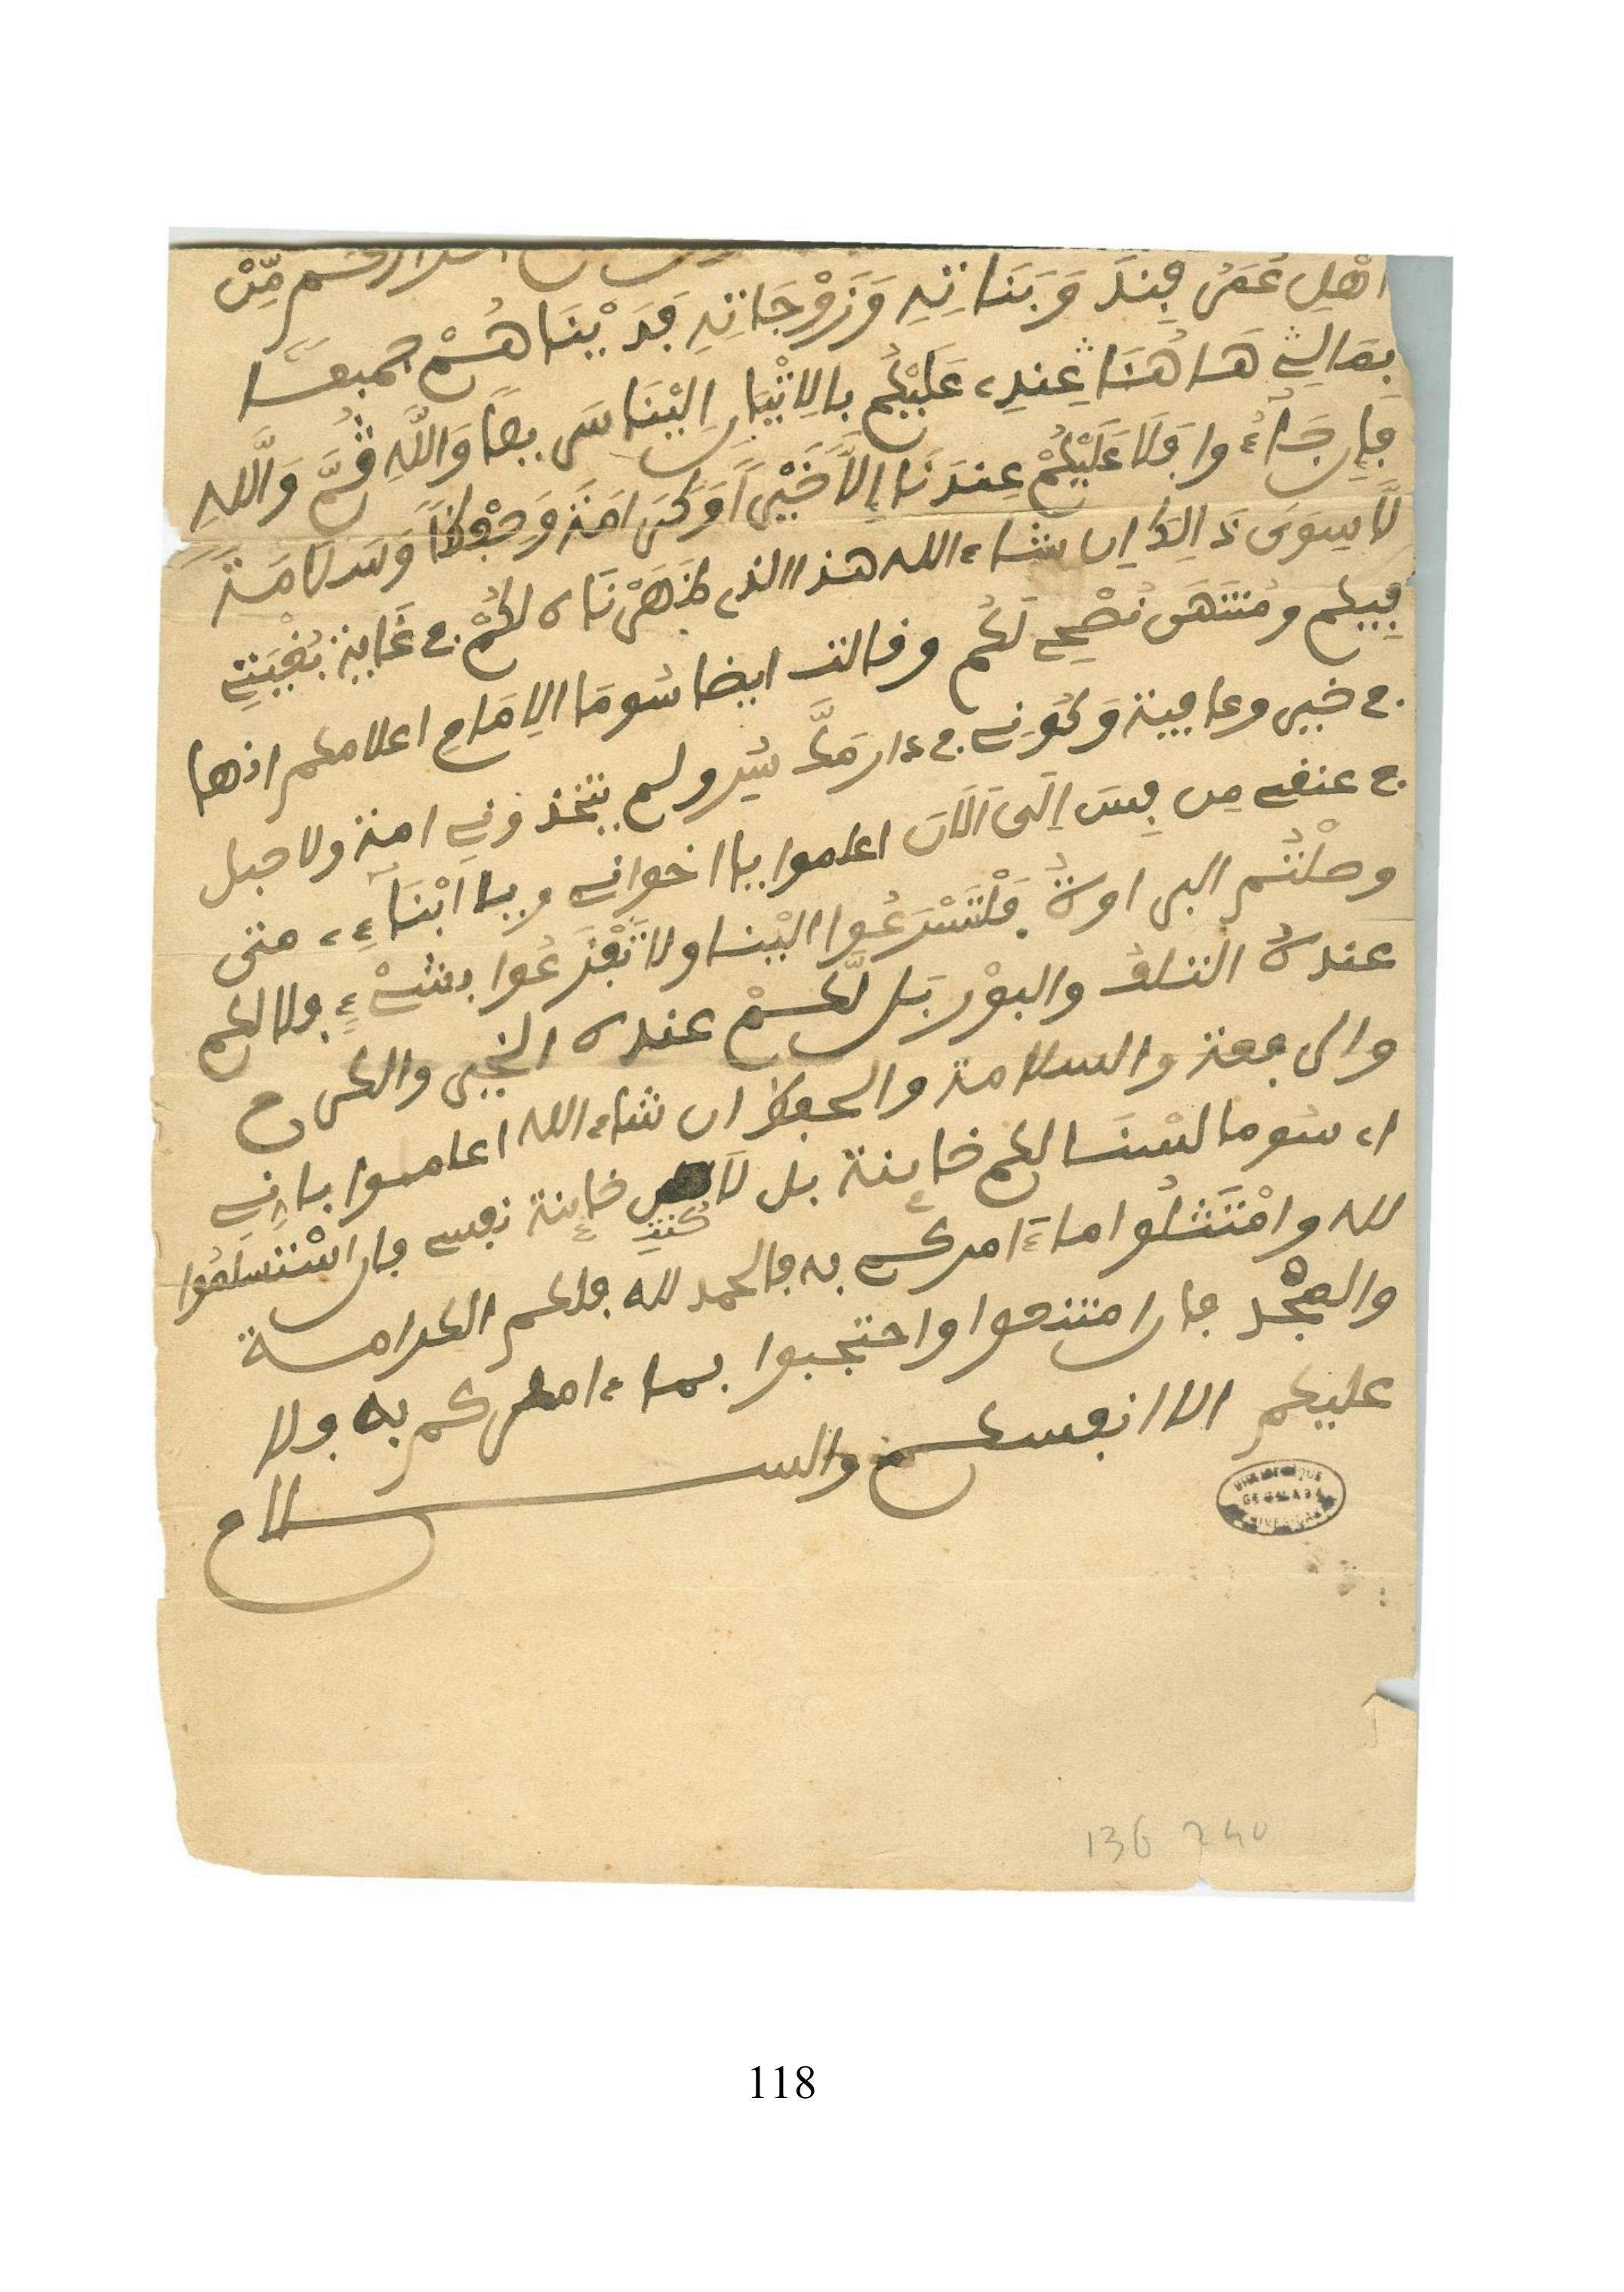 اهْلِ عُمَرَ فِنْدَ وَبَنَاتِهِ وَزَوْجَاتِهِ فَدَيْنَاهُمْ جميعا
بِمَالِي هَاهُنَا عِندِي عَلَيْكُم بالاِتْيَانِ إلَيْنَا سَرِيعًا وَاللَّهِ ثُمَّ وَاللَّهِ
فإن جَاءُوا فَلَا عَلَيْكُمْ عِندَنَا إِلَّا خَيْراً وَكَرَامَةً وَحِفْظاً وَسَلَامَةً
لَا سِوَى ذَالِكَ إن شاء الله هذا الذي ظَهَرْنَاه لكُمْ في غَايَةِ بُغْيَتِي
فِيكم ومُنتَهَى نُصْحِي لَكُم وقالت ايضا سُومَا الإِمَامِ اعلامكم انها
في خير وعافية وَكَوْنِي في دار مَلِّ سِيرِ ولم يتخذوني امة ولا حبل
في عنقي مِن فِيسَ إلَى الَانَ اعلموا يا اخواني ويا ابْنَاءِي متى
وصلْتُم الى اورة فلْتَسْرَعُوا الينا ولا تَفْزَعُوا بشيْءٍ فلا لكم
عنده التلف والبوْر بَل لَّكُمْ عنده الخير والكرم
والرفعة والسلامة والحفظ ان شاء الله اعلموا بانِي
اي سوما لسْنَا لكم خاينة بل لَا كنت خاينة نفسي فان اسْتسلمُوا
لله وامْتَثَلُوا ما ءامركم به فالحمد لله فلكم الكرامة
والمجد فان امتنعوا واحتجبوا بما ءامركم به فلا
عليكم الا انفسكم والسلام
BIBLIOTHÈQUE
136 240
118